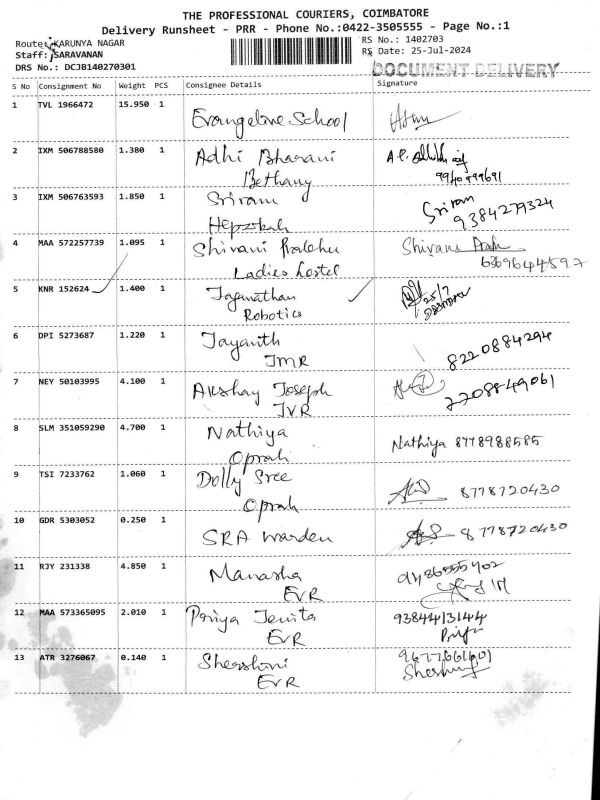 THE PROFESSIONAL COURIERS, COIMBATORE
Delivery Runsheet - PRR - Phone No.:0422-3505555 - Page No.:1
Route: KARUNYA NAGAR
RS No.: 1402703
Staff: SARAVANAN
RS Date: 25-Jul-2024
DRS No.: DCJB140270301
DOCUMENT DELIVERY
S No Consignment No Weight PCS Consignee Details Signature
1 TVL 1966472 15.950 1
Evangeline School
2 IXM 506788580 1.380 1 Adhi Bharani
Bethany
3 IXM 506763593 1.850 1 Sriram Sriram
9384279324
Hepzibah
4 MAA 572257739 1.095 1 Shivani Prabhu Shivani
Ladies hostel 6369644597
5 KNR 152624 1.400 1 Jaganathan 25/7
Robotics
6 DPI 5273687 1.220 1 Jayanth 8220884294
JMR
7 NEY 50103995 4.100 1 Akshay Joseph 2208849061
JVR
8 SLM 351059290 4.700 1 Nathiya Nathiya 8778988585
Oprah
9 TSI 7233762 1.060 1 Dolly Sree 8778720430
Oprah
10 GDR 5303052 0.250 1 SRA warden 8778720430
11 RJY 231338 4.850 1 Manasha 9486555402
EVR
12 MAA 573365095 2.010 1 Priya Jenita 9384413144
EVR Priya
13 ATR 3276067 0.140 1 Shershini
EVR